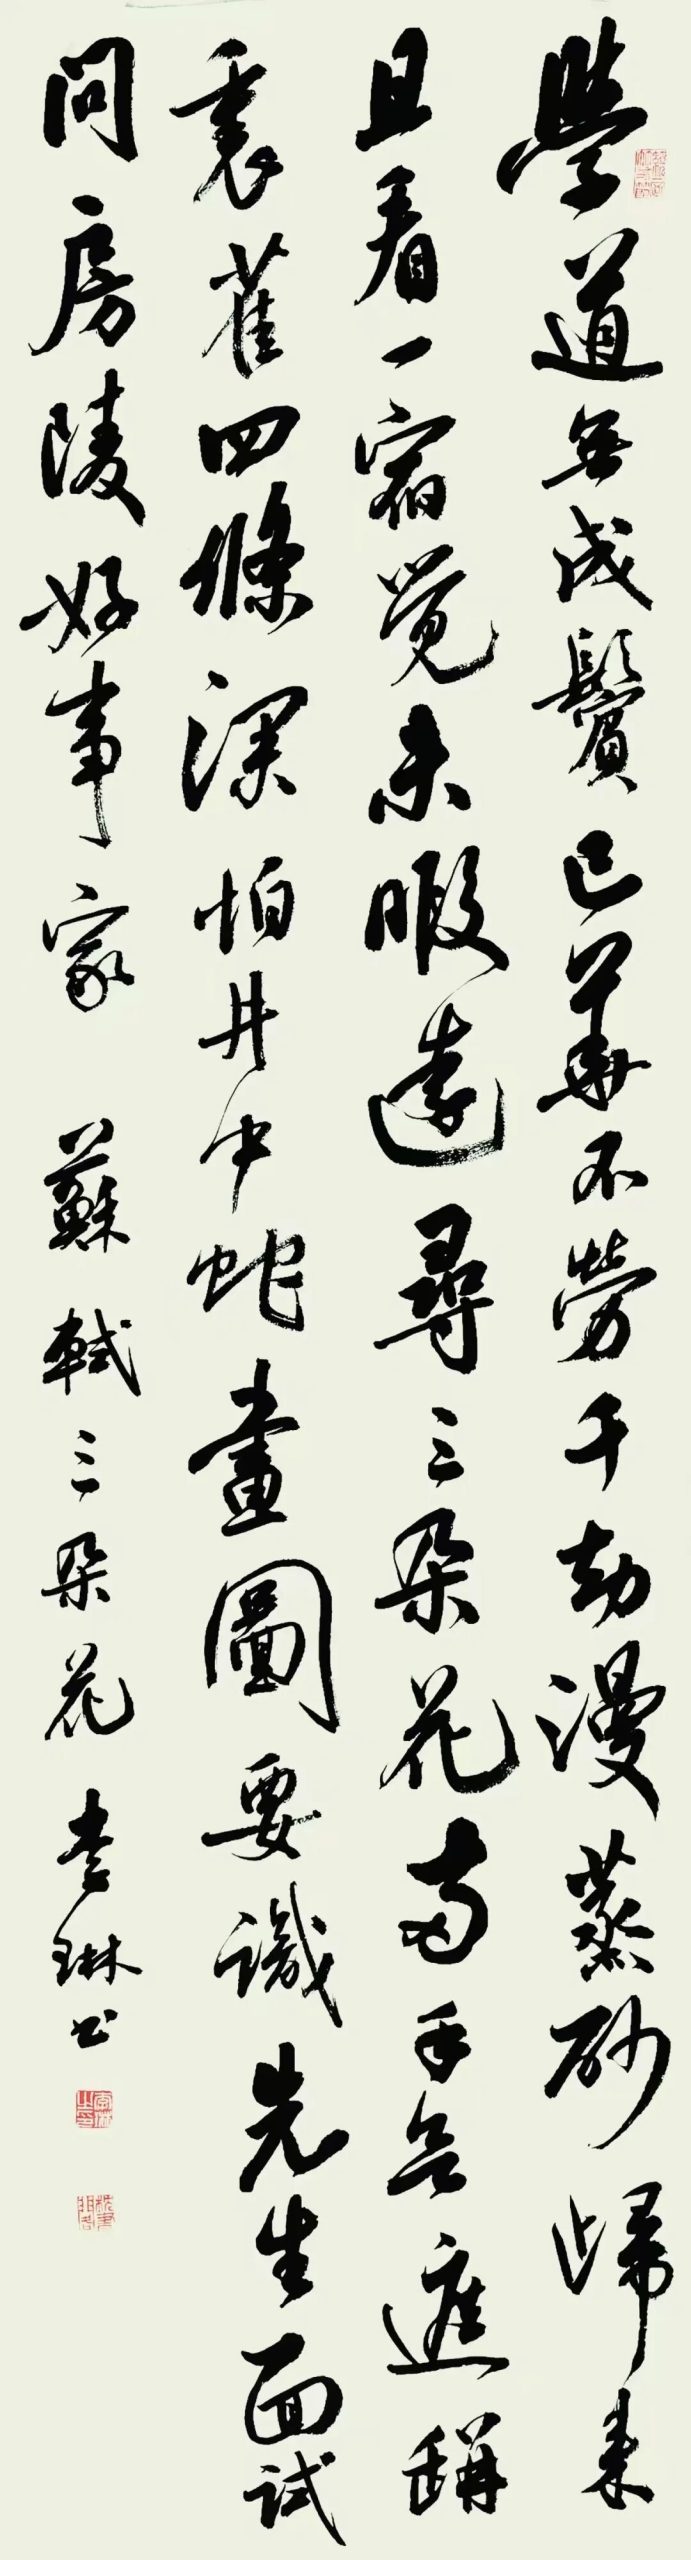 學道無成鬢已華不勞千劫漫蒸砂歸来
且看一宿覺未暇遠尋三朵花两手欲遮缾
裏雀四條深怕井中蛇畫圖要識先生面試
問房陵好事家 蘇軾三朵花 李琳书